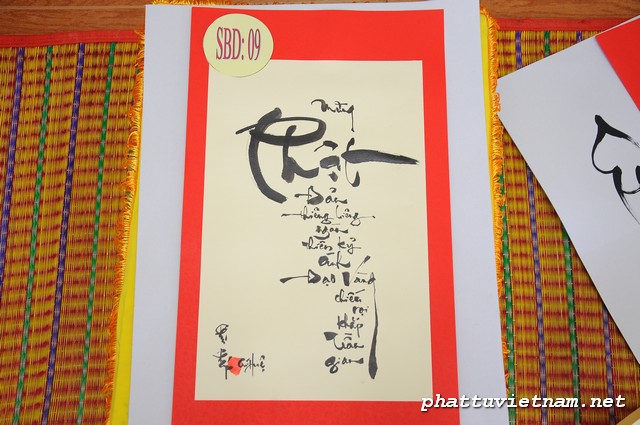 SBD: 09
Mừng
Phật
Đản
thiêng liêng
ngàn
thiên kỷ
ánh
Đạo Vàng
chiếu
rọi
khắp
trần
gian
phattuvietnam.net